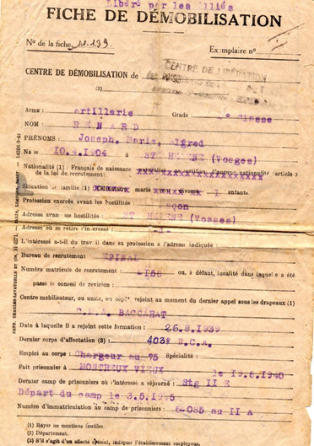 Libéré par les Alliés
FICHE DE DÉMOBILISATION
Nº de la fiche Exemplaire nº
CENTRE DE LIBÉRATION
CENTRE DE DÉMOBILISATION de
(2)
Arme : artillerie Grade classe
NOM : RENARD
PRÉNOMS : Joseph, Marie, Alfred
Né le 10.4.1904 à STE HELENE (Vosges)
Nationalité (1) : Français de naissance nationalité article
de la loi de recrutement
Situation de famille (1) marié enfants
Profession exercée avant les hostilités :
Adresse avant les hostilités : STE HELENE (Vosges)
Adresse où se retire l'intéressé :
L'intéressé a-t-il du travail dans sa profession à l'adresse indiquée :
Bureau de recrutement EPINAL
Numéro matricule de recrutement : ou, à défaut, localité dans laquelle a été
passé le conseil de révision :
Centre mobilisateur, ou unité, rejoint au moment du dernier appel sous les drapeaux (1)
BACCARAT
Date à laquelle il a rejoint cette formation : 26.8.1939
Dernier corps d'affectation (3) : 403e B.C.A.
Emploi au corps : Chargeur au 75 Spécialité :
Fait prisonnier à MONTREUX VIEUX le 19.6.1940
Dernier camp de prisonniers où l'intéressé a séjourné : Stg II E
Départ du camp le 3.5.1945
Numéro d'immatriculation au camp de prisonniers : 6.085 au II A
(1) Rayer les mentions inutiles.
(2) Département.
(3) S'il s'agit d'un affecté spécial, indiquer l'établissement employeur.